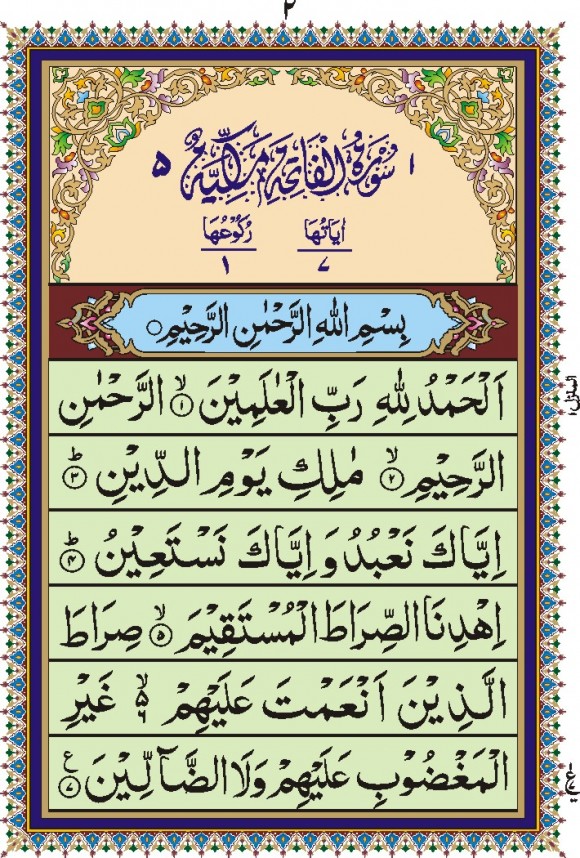 ٢
١ سُوْرَةُ الْفَاتِحَةِ مَكِّيَّةٌ ٥
اٰيَاتُهَا رُكُوْعُهَا
٧ ١
بِسْمِ اللهِ الرَّحْمٰنِ الرَّحِيْمِ
اَلْحَمْدُ لِلّٰهِ رَبِّ الْعٰلَمِيْنَ ۙ﴿١﴾ الرَّحْمٰنِ
الرَّحِيْمِ ۙ﴿٢﴾ مٰلِكِ يَوْمِ الدِّيْنِ ؕ﴿٣﴾
اِيَّاكَ نَعْبُدُ وَ اِيَّاكَ نَسْتَعِيْنُ ؕ﴿۴﴾
اِهْدِنَا الصِّرَاطَ الْمُسْتَقِيْمَ ۙ﴿۵﴾ صِرَاطَ
الَّذِيْنَ اَنْعَمْتَ عَلَيْهِمْ ۙ۬ۦ غَيْرِ
الْمَغْضُوْبِ عَلَيْهِمْ وَلَا الضَّآلِّيْنَ ﴿٧﴾ ع